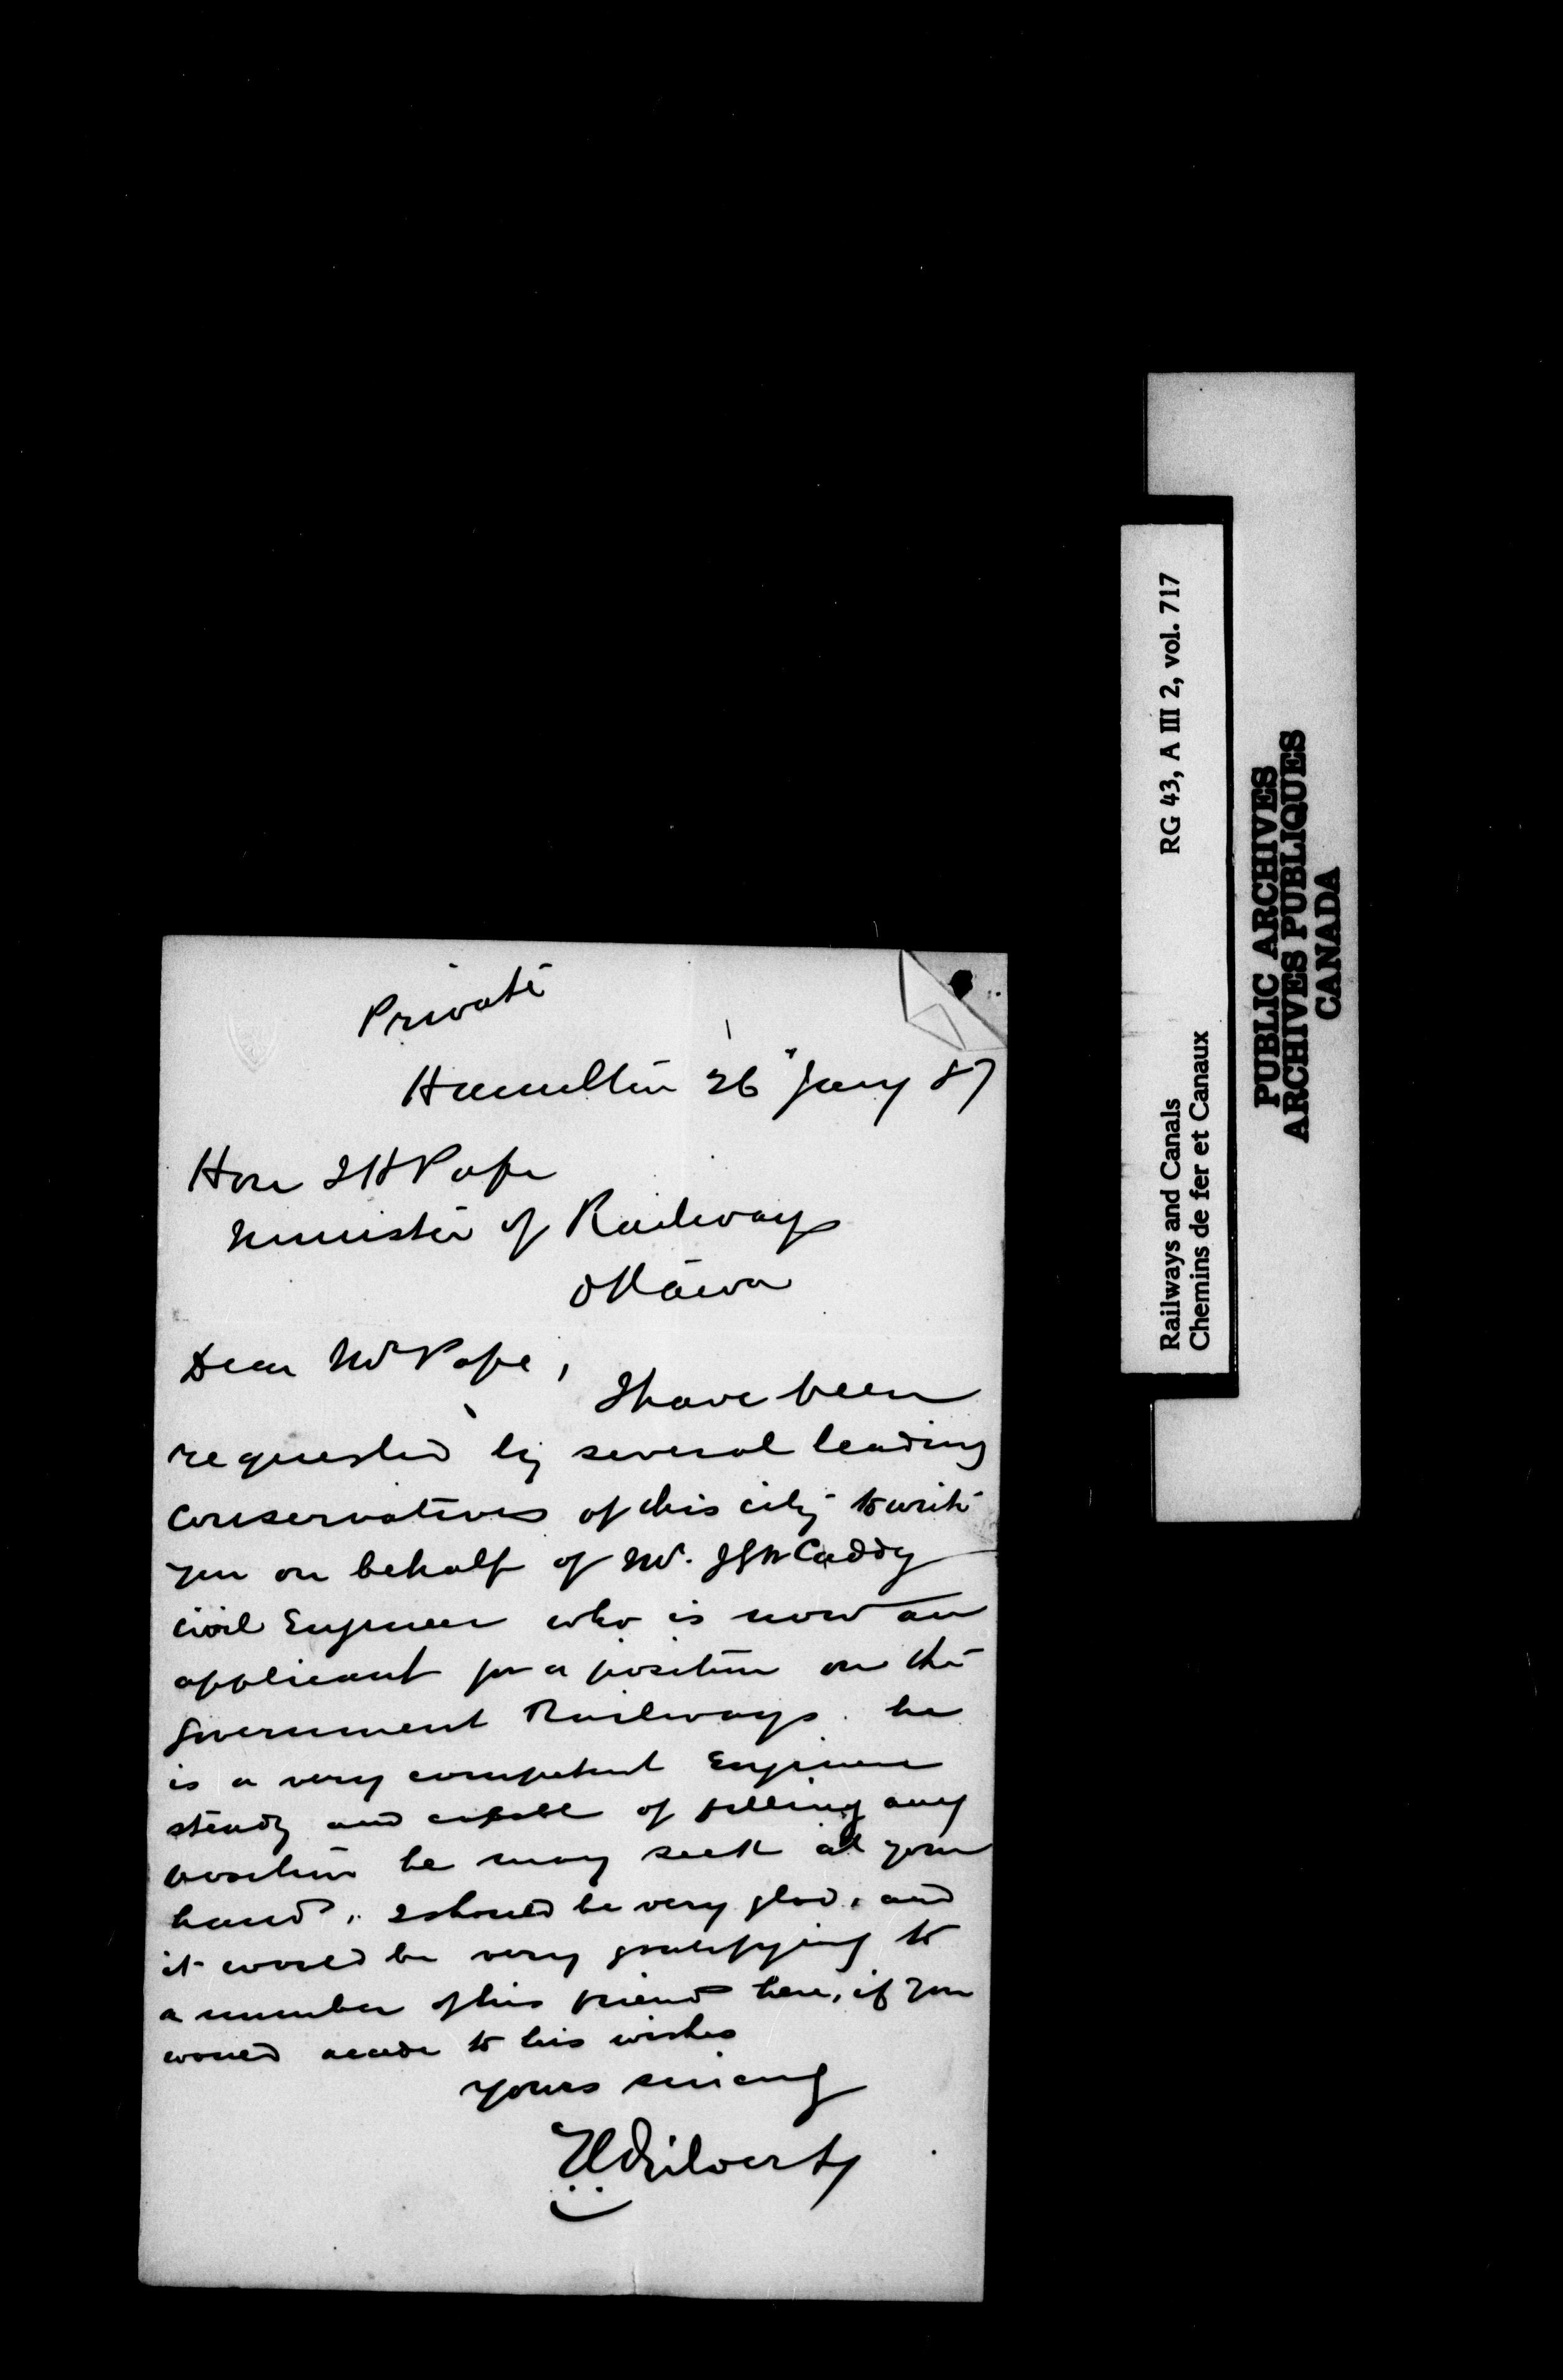 Private
Hamilton 26 Jany 87
Hon J H Pope
Minister of Railways
Ottawa
Dear Mr Pope,
I have been
requested by several leading
Conservatives of this city to write
you on behalf of Mr. Caddy
Civil Engineer who is now an
applicant for a position on the
Government Railways. he
is a very competent Engineer
steady and capable of filling any
position he may seek at your
hands, I should be very glad, and
it would be very gratifying to
a number of his friends here, if you
would accede to his wishes
Yours sincerely
Railways and Canals
Chemins de fer et Canaux
RG 43, A III 2, vol. 717
PUBLIC ARCHIVES
ARCHIVES PUBLIQUES
CANADA